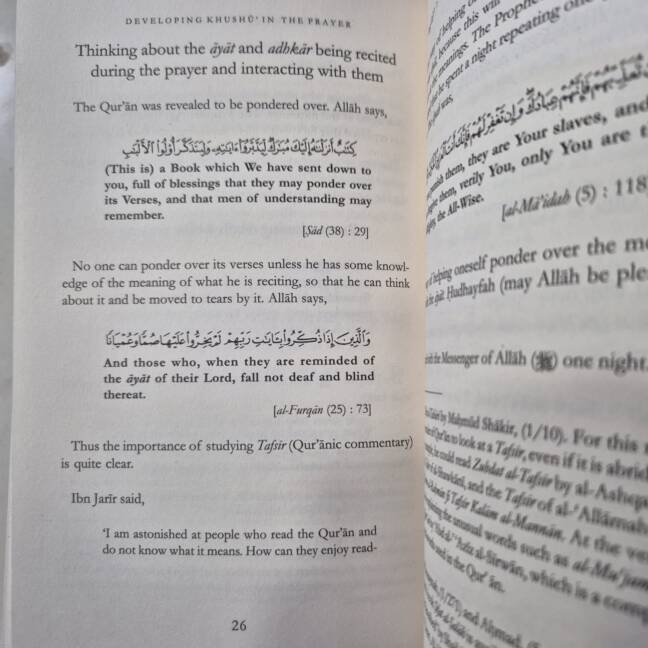 DEVELOPING KHUSHŪ' IN THE PRAYER
Thinking about the āyāt and adhkār being recited
during the prayer and interacting with them
The Qur'ān was revealed to be pondered over. Allāh says,
كِتَٰبٌ أَنزَلْنَٰهُ إِلَيْكَ مُبَٰرَكٌ لِّيَدَّبَّرُوٓا۟ ءَايَٰتِهِۦ وَلِيَتَذَكَّرَ أُو۟لُوا۟ ٱلْأَلْبَٰبِ
(This is) a Book which We have sent down to
you, full of blessings that they may ponder over
its Verses, and that men of understanding may
remember.
[Ṣād (38) : 29]
No one can ponder over its verses unless he has some knowl-
edge of the meaning of what he is reciting, so that he can think
about it and be moved to tears by it. Allāh says,
وَٱلَّذِينَ إِذَا ذُكِّرُوا۟ بِـَٔايَٰتِ رَبِّهِمْ لَمْ يَخِرُّوا۟ عَلَيْهَا صُمًّا وَعُمْيَانًا
And those who, when they are reminded of
the āyāt of their Lord, fall not deaf and blind
thereat.
[al-Furqān (25) : 73]
Thus the importance of studying Tafsīr (Qur'ānic commentary)
is quite clear.
Ibn Jarīr said,
'I am astonished at people who read the Qur'ān and
do not know what it means. How can they enjoy read-
26
of helping
because this will
meanings. The Prophe
spent a night repeating one
was.
عِبَادُكَ وَإِن تَغْفِرْ لَهُمْ فَإِنَّكَ
them, they are Your slaves, and
them, verily You, only You are t
the All-Wise.
[al-Mā'idah (5) : 118
of helping oneself ponder over the me
the āyāt. Ḥudhayfah (may Allāh be ple
the Messenger of Allāh (ﷺ) one night
by Maḥmūd Shākir, (1/10). For this
to look at a Tafsīr, even if it is abrid
could read Zubdat al-Tafsīr by al-Ashqa
and the Tafsīr of al-'Allāmah
Tafsīr Kalām al-Mannān. At the ve
the unusual words such as al-Mu'jam
al-Sīrwān, which is a comp
used in the Qur'ān.
and Aḥmad,